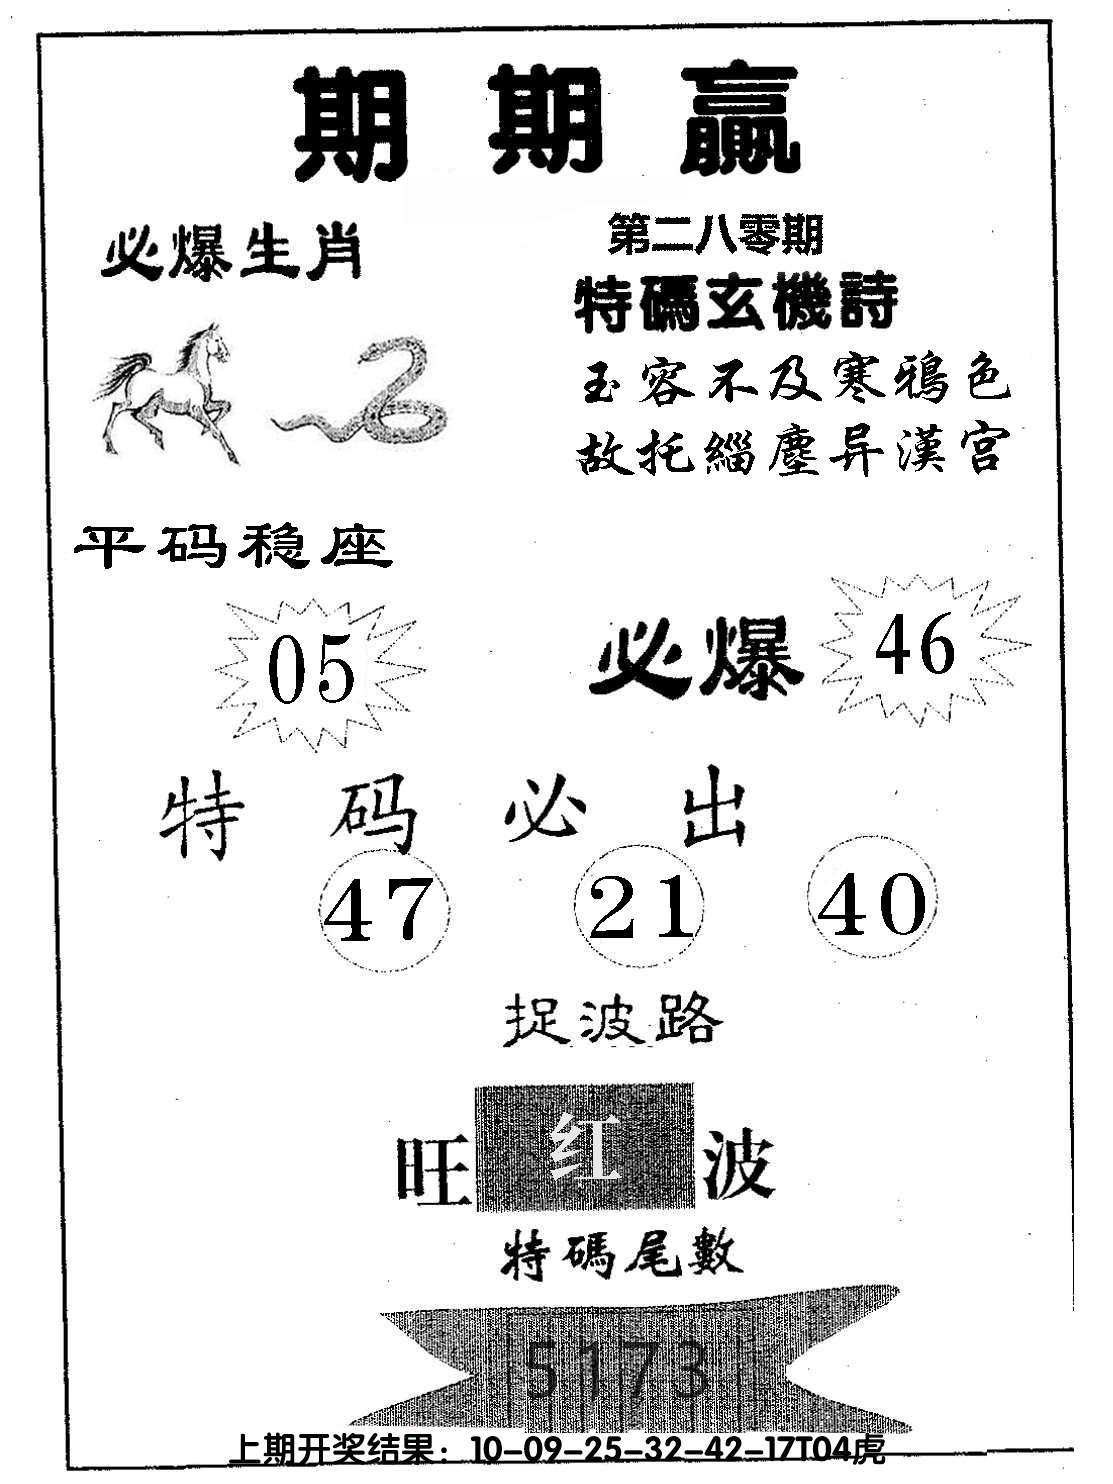 期期赢
必爆生肖
第二八零期
特碼玄機詩
玉容不及寒鴉色
故托緇塵异漢宮
平码稳座
05
必爆 46
特码必出
47 21 40
捉波路
旺 红 波
特碼尾數
5173
上期开奖结果：10-09-25-32-42-17T04虎